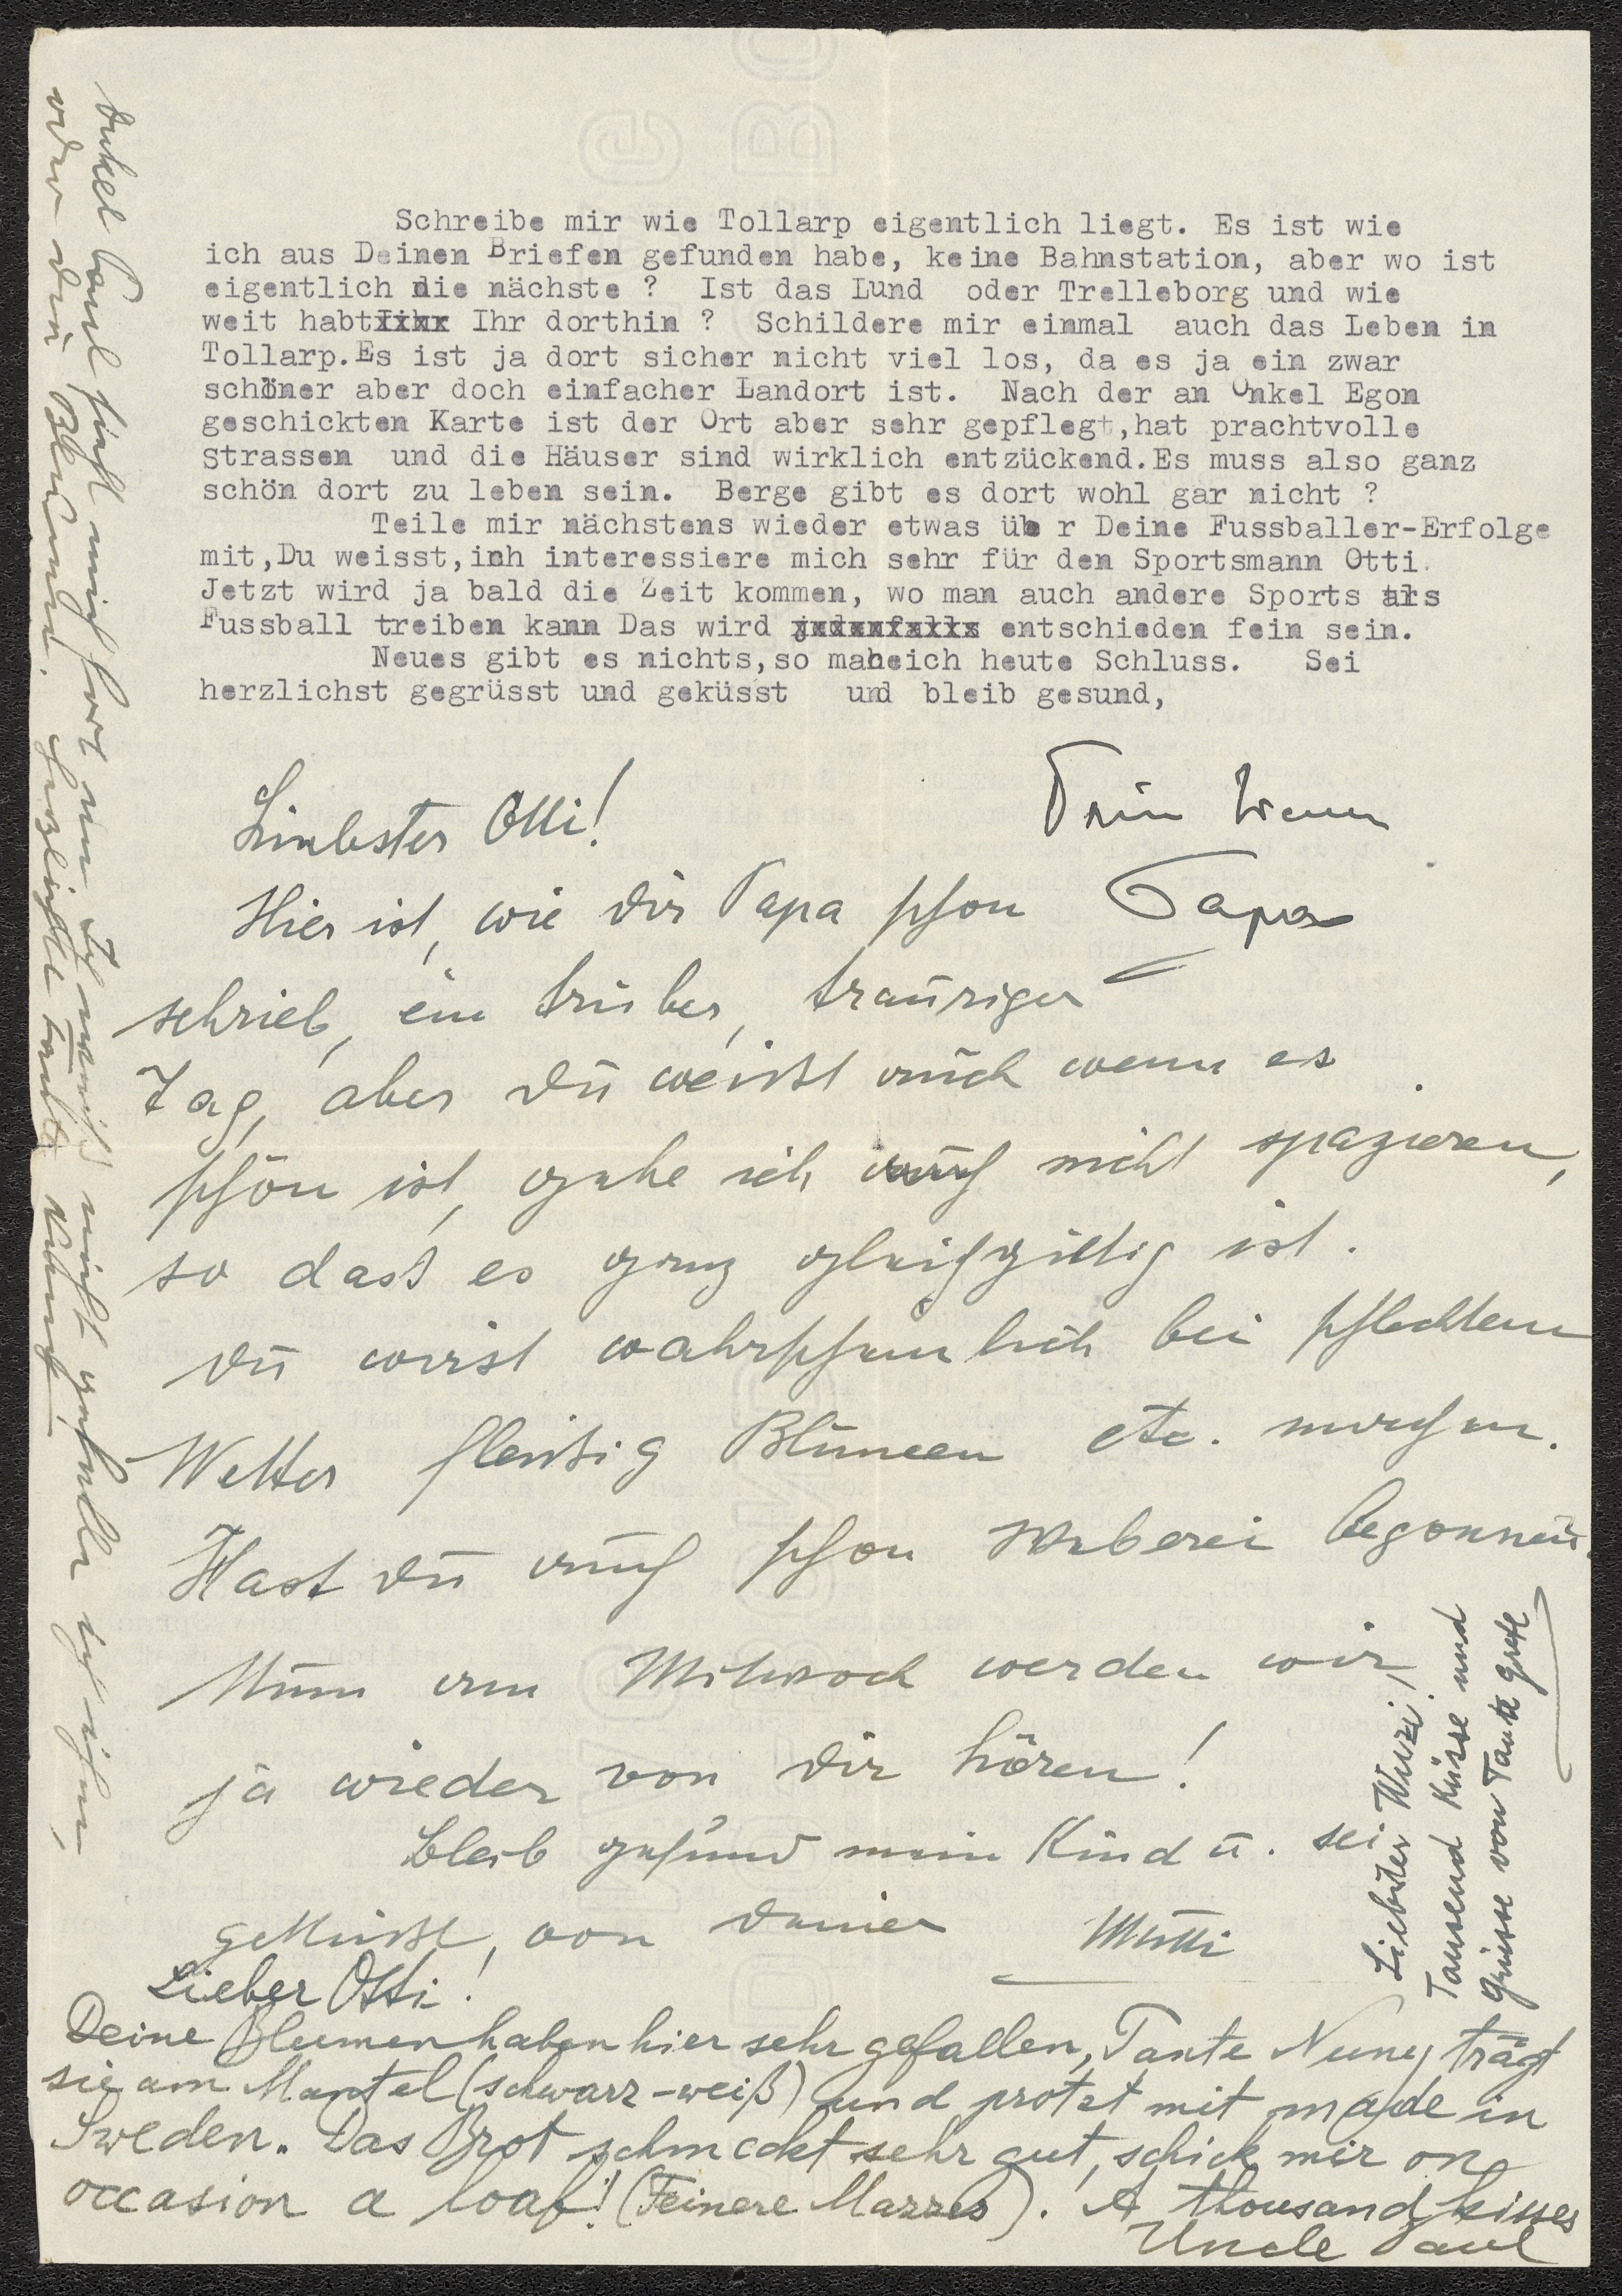 Schreibe mir wie Tollarp eigentlich liegt. Es ist wie
ich aus Deinen Briefen gefunden habe, keine Bahnstation, aber wo ist
eigentlich die nächste ? Ist das Lund oder Trelleborg und wie
weit habt Ihr dorthin ? Schildere mir einmal auch das Leben in
Tollarp.Es ist ja dort sicher nicht viel los, da es ja ein zwar
schöner aber doch einfacher Landort ist. Nach der an Onkel Egon
geschickten Karte ist der Ort aber sehr gepflegt,hat prachtvolle
Strassen und die Häuser sind wirklich entzückend.Es muss also ganz
schön dort zu leben sein. Berge gibt es dort wohl gar nicht ?
Teile mir nächstens wieder etwas üb r Deine Fussballer-Erfolge
mit,Du weisst,ich interessiere mich sehr für den Sportsmann Otti.
Jetzt wird ja bald die Zeit kommen, wo man auch andere Sports als
Fussball treiben kann Das wird jedenfalls entschieden fein sein.
Neues gibt es nichts,so macheich heute Schluss. Sei
herzlichst gegrüsst und geküsst und bleib gesund,
Dein treuer
Papa
Liebster Otti!
Hier ist, wie dir Papa schon
schrieb, ein trüber, trauriger
Tag, aber du weißt auch wenn es
schön ist, gehe ich auch nicht spazieren,
so dass es ganz gleichgiltig ist.
Du wirst wahrscheinlich bei schlechtem
Wetter fleißig Blumen etc. machen.
Hast du auch schon Weberei begonnen.
Nun am Mittwoch werden wir
ja wieder von dir hören!
Bleib gesund mein Kind u. sei
geküsst, von deiner Mutti
Liebster Wuzi!
Tausend Küsse und
Grüsse von Tante Grete
Lieber Otti!
Deine Blumen haben hier sehr gefallen, Tante Nuny trägt
sie am Mantel (schwarz-weiß) und protzt mit made in
Sweden. Das Brot schmeckt sehr gut, schick mir on
occasion a loaf! (Feinere Mazzes). A thousand kisses
Uncle Paul
Onkel Paul sieht mich fort um Ich weiß nicht gefalle ich ihm,
oder die Blumen. Herzlichst Tante